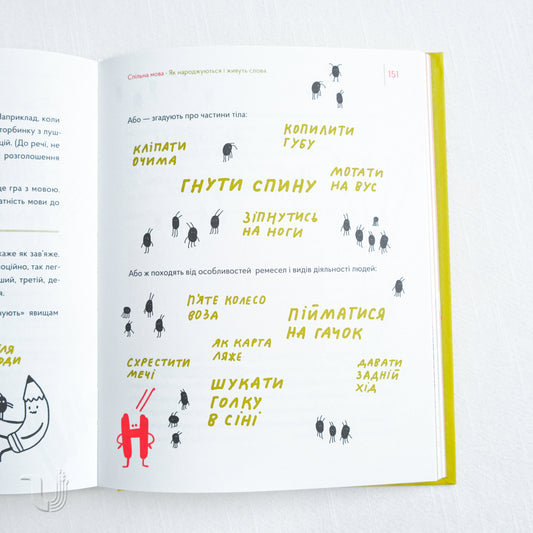 Наприклад, коли
торбинку з луш-
цій. (До речі, не
розголошення
це гра з мовою.
датність мови до
каже як зав'яже.
оційно, так лег-
ший, третій, де-
ся.
нують» явищам
ля
оди
Спільна мова · Як народжуються і живуть слова
151
Або — згадують про частини тіла:
КОПИЛИТИ
ГУБУ
КЛІПАТИ
ОЧИМА
МОТАТИ
НА ВУС
ГНУТИ СПИНУ
ЗІПНУТИСЬ
НА НОГИ
Або ж походять від особливостей ремесел і видів діяльності людей:
П'ЯТЕ КОЛЕСО
ВОЗА
ПІЙМАТИСЯ
НА ГАЧОК
ЯК КАРТА
ЛЯЖЕ
СХРЕСТИТИ
МЕЧІ
ДАВАТИ
ЗАДНІЙ
ХІД
ШУКАТИ
ГОЛКУ
В СІНІ
Н